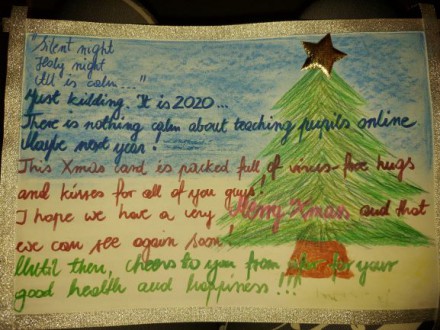 "Silent night
Holy night
All is calm..."
Just kidding. It is 2020...
There is nothing calm about teaching pupils online.
Maybe next year!
This Xmas card is packed full of virus-free hugs
and kisses for all of you guys!
I hope we have a very Merry Xmas and that
we can see again soon!
Until then, cheers to you from for your
good health and happiness!!!